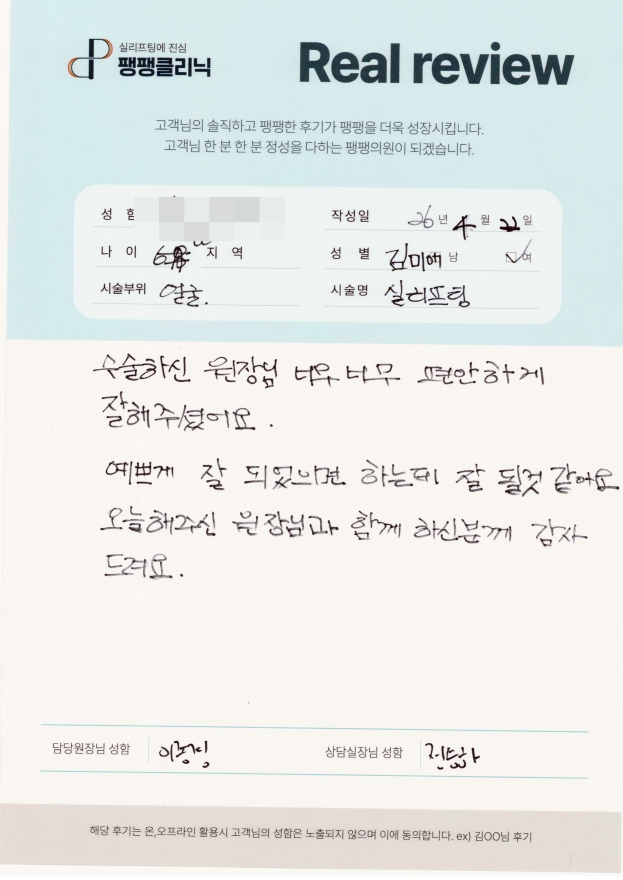 실리프팅에 진심
팽팽클리닉
Real review
고객님의 솔직하고 팽팽한 후기가 팽팽을 더욱 성장시킵니다.
고객님 한 분 한 분 정성을 다하는 팽팽의원이 되겠습니다.
성 함 작성일 26년 4월 22일
나 이 지 역 성 별 김미애 남 여
시술부위 얼굴. 시술명 실리프팅
수술하신 원장님 너무 너무 편안하게
잘해주셨어요.
예쁘게 잘 되었으면 하는데 잘 될것 같아요
오늘해주신 원장님과 함께 하신분께 감사
드려요.
담당원장님 성함 상담실장님 성함
해당 후기는 온,오프라인 활용시 고객님의 성함은 노출되지 않으며 이에 동의합니다. ex) 김OO님 후기